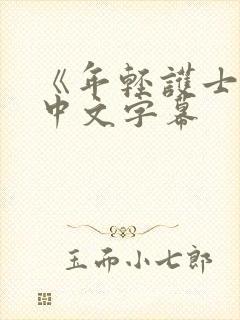 《年轻護士
中文字幕
玉而小七郎